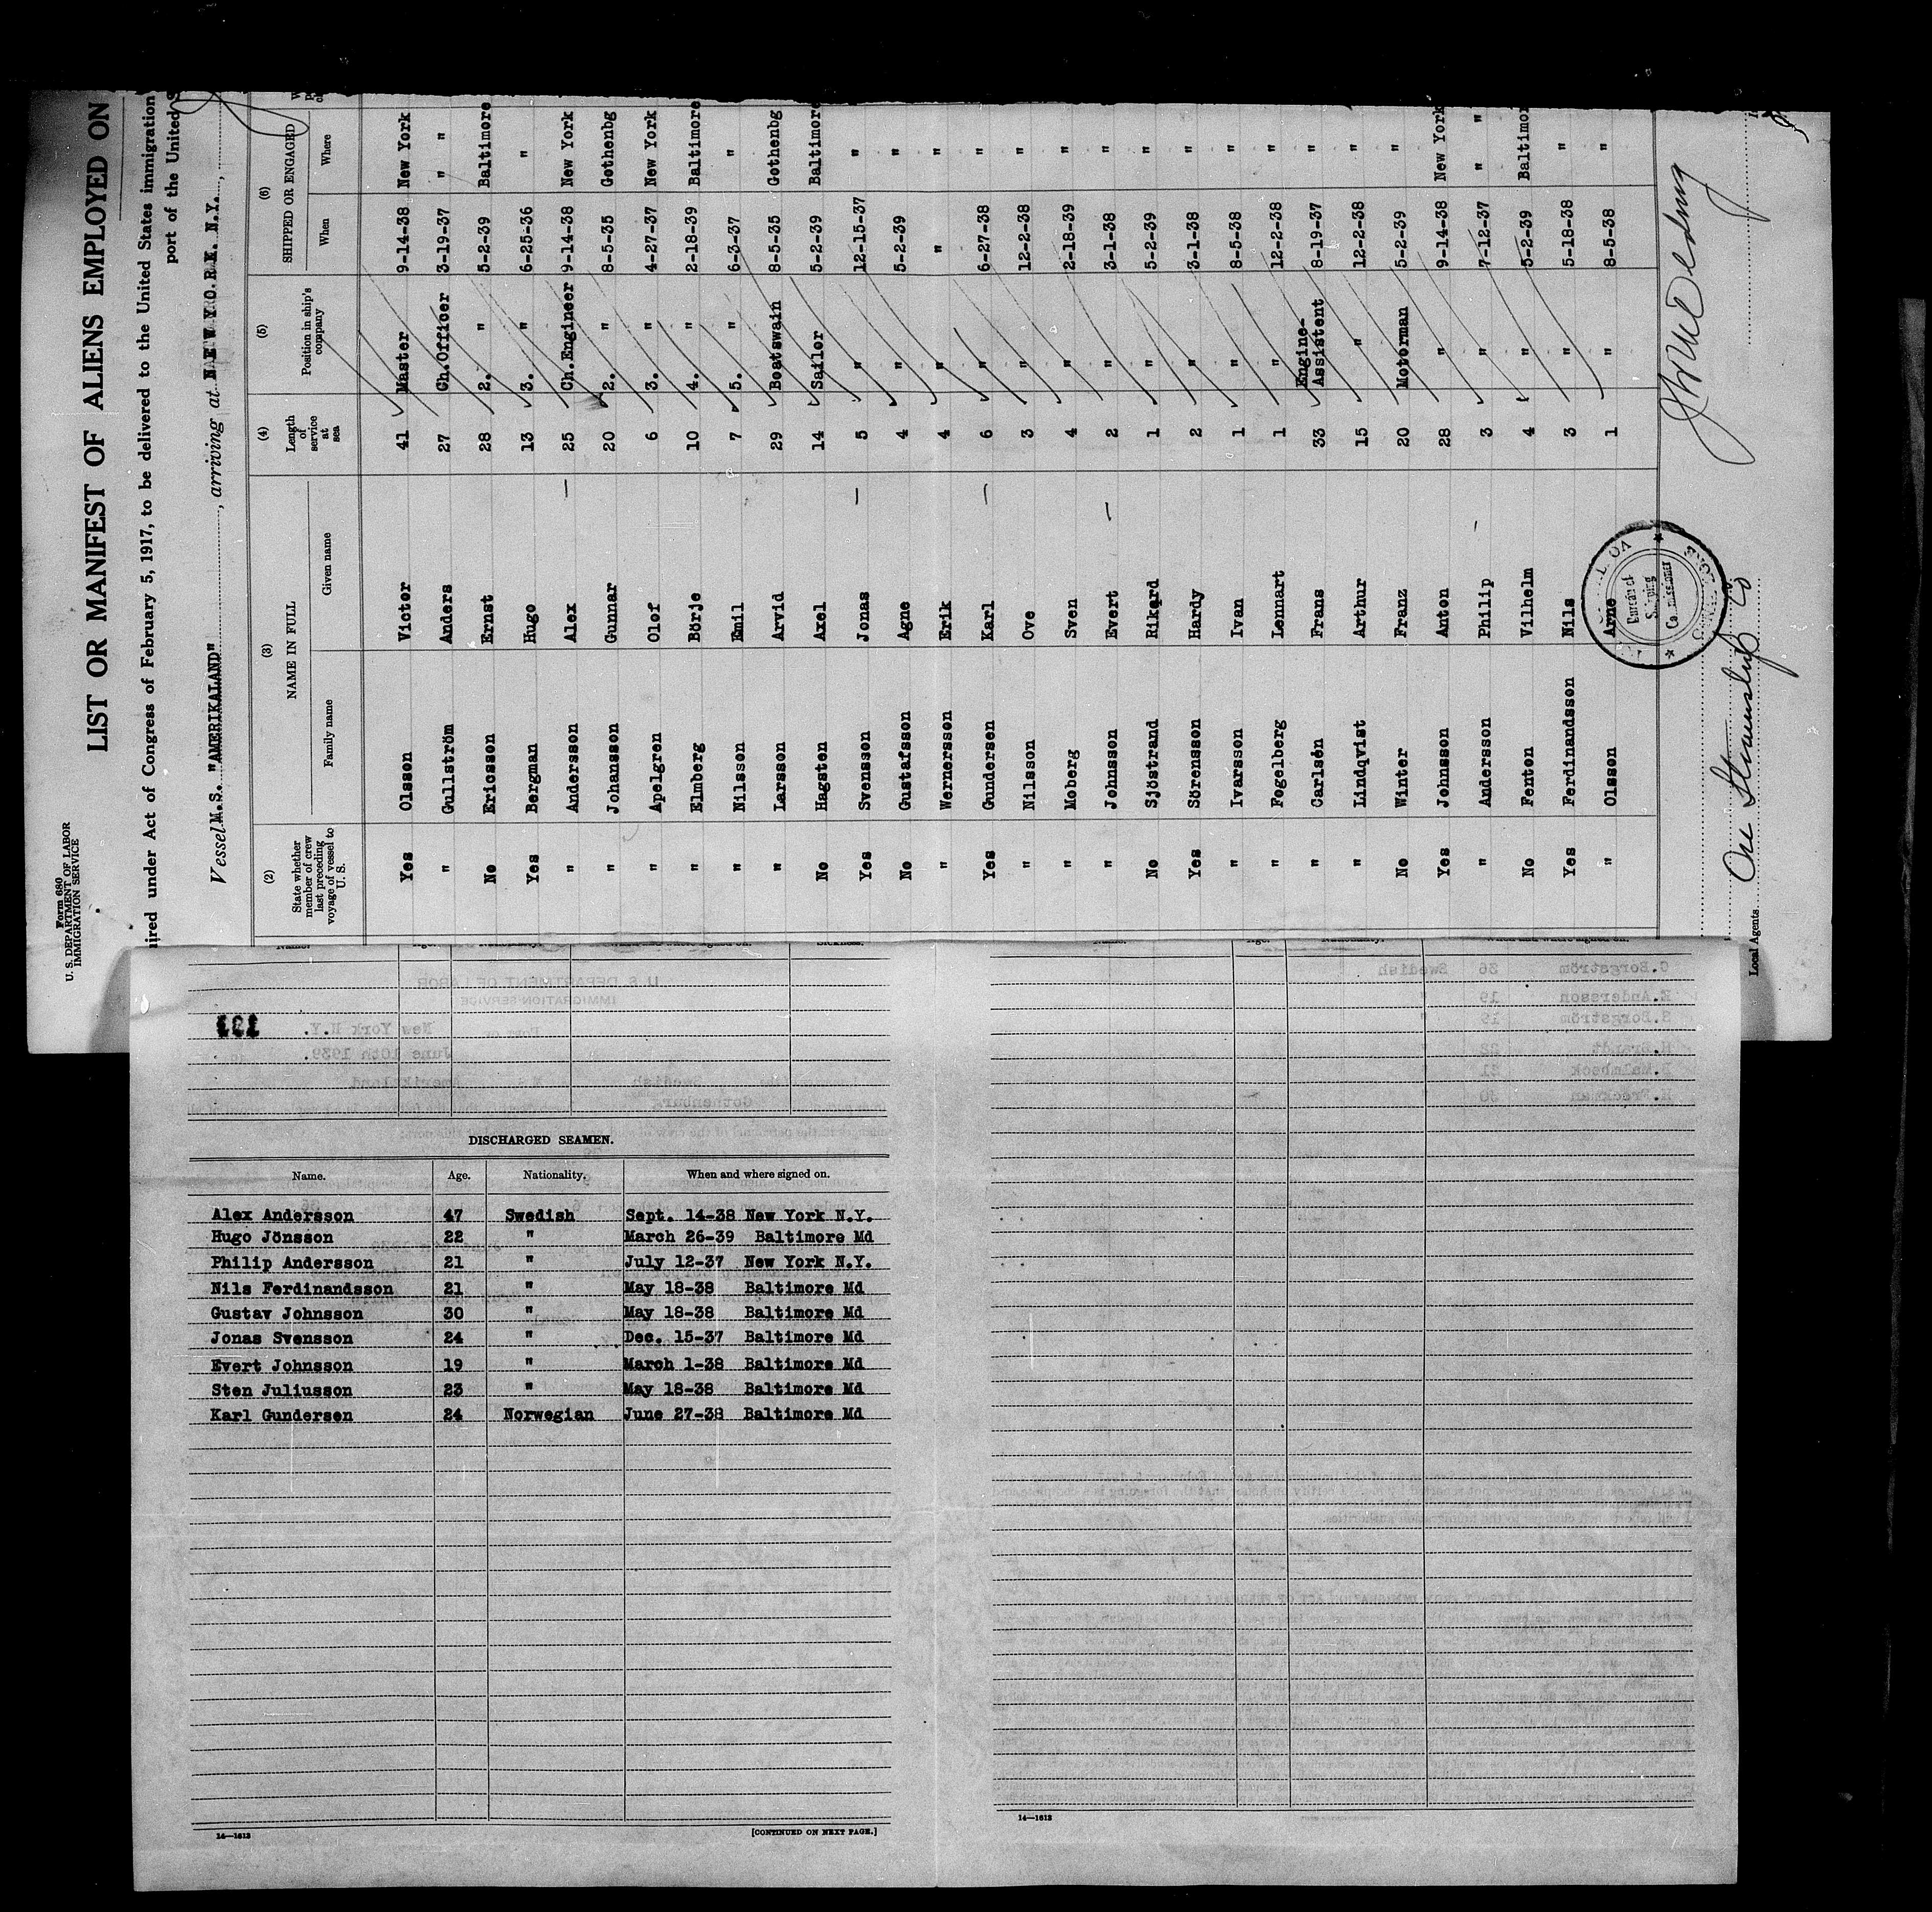 Form 680
U. S. DEPARTMENT OF LABOR
IMMIGRATION SERVICE
LIST OR MANIFEST OF ALIENS EMPLOYED ON
ired under Act of Congress of February 5, 1917, to be delivered to the United States immigration
port of the United S
Vessel M.S. "AMERIKALAND", arriving at NEW YORK. N.Y.,
(2) (3) (4) (5) (6)
State whether member of crew last preceding voyage of vessel to U. S. NAME IN FULL Length of service at sea Position in ship's company SHIPPED OR ENGAGED
Family name Given name When Where
Yes Olsson Victor 41 Master 9-14-38 New York
" Gullström Anders 27 Ch.Officer 3-19-37 " "
No Ericsson Ernst 28 2. " 5-2-39 Baltimore
Yes Bergman Hugo 13 3. " 6-25-36 "
" Andersson Alex — 25 Ch.Engineer 9-14-38 New York
" Johansson Gunnar 20 2. " 8-5-35 Gothenbg
" Apelgren Olof 6 3. " 4-27-37 New York
" Elmberg Börje 10 4. " 2-18-39 Baltimore
" Nilsson Emil 7 5. " 6-3-37 "
" Larsson Arvid 29 Boatswain 8-5-35 Gothenbg
No Hagsten Axel 14 Sailor 5-2-39 Baltimore
Yes Svensson Jonas — 5 " 12-15-37 "
No Gustafsson Agne 4 " 5-2-39 "
" Wernersson Erik 4 " " "
Yes Gundersen Karl — 6 " 6-27-38 "
" Nilsson Ove 3 " 12-2-38 "
" Moberg Sven 4 " 2-18-39 "
" Johnsson Evert — 2 " 3-1-38 "
No Sjöstrand Rikard 1 " 5-2-39 "
Yes Sörensson Hardy 2 " 3-1-38 "
" Ivarsson Ivan 1 " 8-5-38 "
" Fogelberg Lennart 1 " 12-2-38 "
" Carlsén Frans 33 Engine-Assistent 8-19-37 "
" Lindqvist Arthur 15 " 12-2-38 "
No Winter Franz 20 Motorman 5-2-39 "
Yes Johnsson Anton 28 " 9-14-38 New York
" Andersson Philip — 3 " 7-12-37 " "
No Fenton Vilhelm 4 " 5-2-39 Baltimor
Yes Ferdinandsson Nils 3 " 5-18-38 "
" Olsson Arne 1 " 8-5-38 "
Local Agents Ore Steamship Co
DISCHARGED SEAMEN.
Name. Age. Nationality. When and where signed on.
Alex Andersson 47 Swedish Sept. 14-38 New York N.Y.
Hugo Jönsson 22 " March 26-39 Baltimore Md
Philip Andersson 21 " July 12-37 New York N.Y.
Nils Ferdinandsson 21 " May 18-38 Baltimore Md
Gustav Johnsson 30 " May 18-38 Baltimore Md
Jonas Svensson 24 " Dec. 15-37 Baltimore Md
Evert Johnsson 19 " March 1-38 Baltimore Md
Sten Juliusson 23 " May 18-38 Baltimore Md
Karl Gundersen 24 Norwegian June 27-38 Baltimore Md
14—1613
[CONTINUED ON NEXT PAGE.]
14—1613